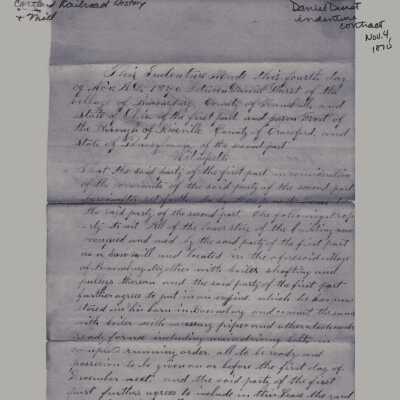 Railroad History
+ Mill
Daniel Durst
indenture
contract
Nov. 4,
1870
This Indenture made this fourth day
of Nov A.D. 1870 Between Daniel Durst of the
village of County of Trumbull and
State of Ohio of the first part and Trout of
the Borough of County of Crawford and
State of Pennsylvania of the second part
Witnesseth
That the said party of the first part in consideration
of the covenants of the said party of the second part
the said party of the second part the following
to wit All of the lower story of the building now
and used by the said party of the first part
as a Saw mill and located in the aforesaid village
of together with boiler shafting and
pulleys thereon and the said party of the first part
further agrees to put in an engine which he has now
stored in his barn in and connect the same
with boiler with necessary pipes and attachments
ready for use including main driving belt, in
complete running order all to be ready and
possession to be given on or before the first day of
December next, and the said party of the first
part further agrees to include in this Lease the said